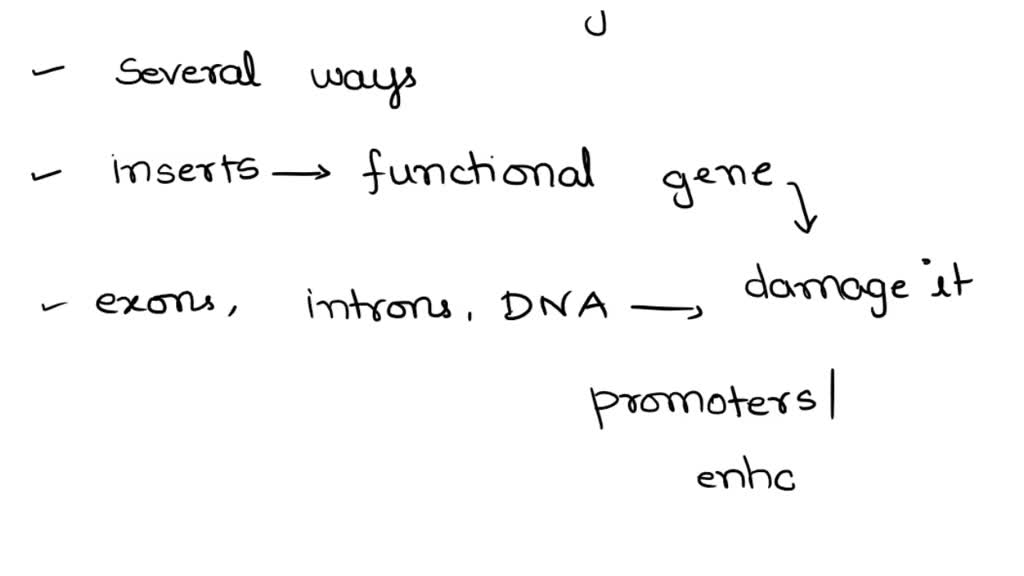 ✓ Several ways
✓ inserts → functional gene
↓ damage it
✓ exons, introns, DNA →
promoters/
enhc